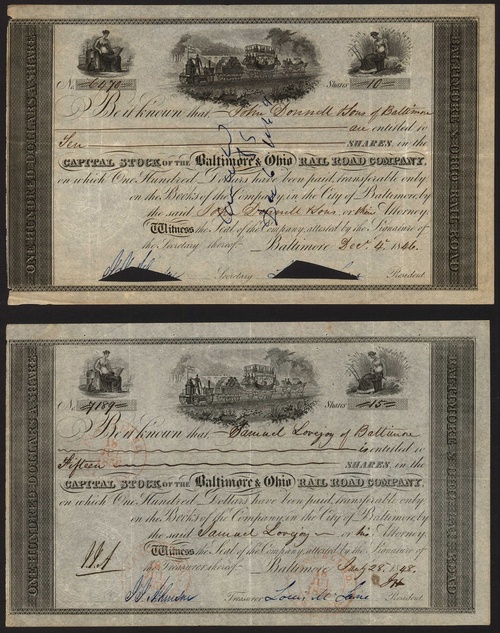 ONE HUNDRED DOLLARS A SHARE
BALTIMORE & OHIO RAIL ROAD
No. 6070 Shares 10
Be it known that John Donnell & Sons of Baltimore
are entitled to
Ten SHARES, in the
CAPITAL STOCK OF THE Baltimore & Ohio RAIL ROAD COMPANY,
on which One Hundred Dollars have been paid, transferable only
on the Books of the Company, in the City of Baltimore, by
the said John Donnell & Sons, or their Attorney.
Witness the Seal of the Company, attested by the Signature of
the Secretary thereof. Baltimore Dec. 4, 1846.
Secretary President
ONE HUNDRED DOLLARS A SHARE
BALTIMORE & OHIO RAIL ROAD
No. 7189 Shares 15
Be it known that Samuel Lovejoy of Baltimore
is entitled to
Fifteen SHARES, in the
CAPITAL STOCK OF THE Baltimore & Ohio RAIL ROAD COMPANY,
on which One Hundred Dollars have been paid, transferable only
on the Books of the Company, in the City of Baltimore, by
the said Samuel Lovejoy or his Attorney
Witness the Seal of the Company, attested by the Signature of
the Treasurer thereof. Baltimore 28, 1848.
Treasurer Louis McLane President